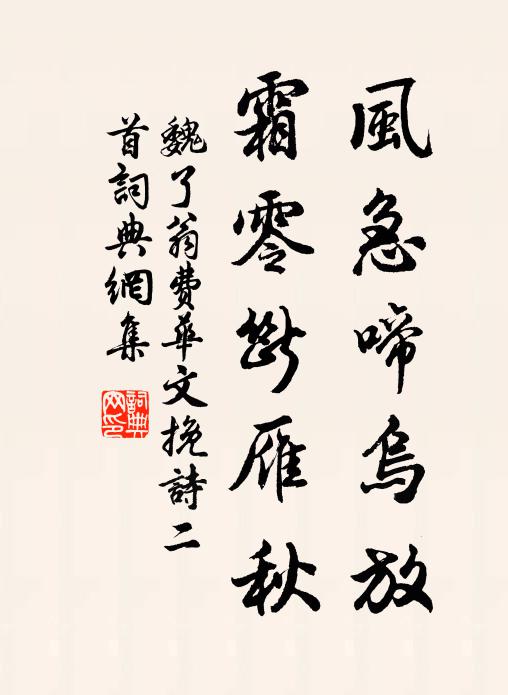 風急啼烏放
霜零斷雁秋
魏了翁費華文挽詩二
首詞典網集
詞典网印